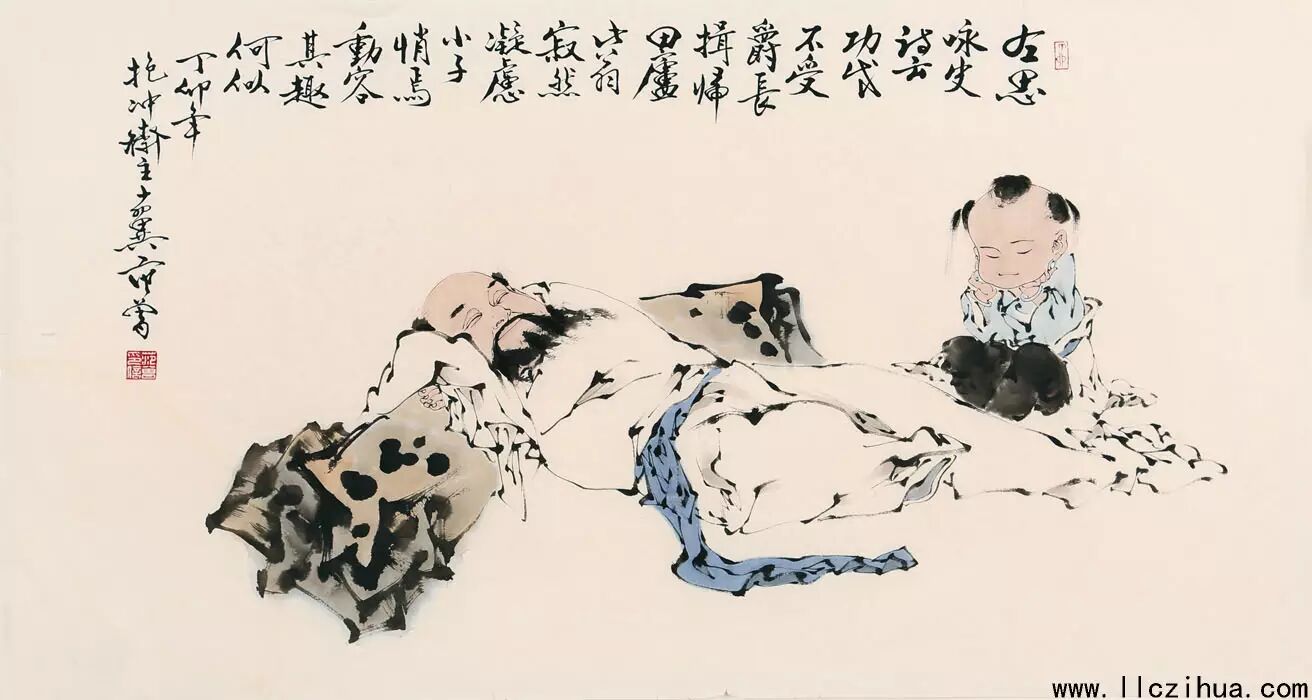 左思
咏史
诗云
功成
不受
爵長
揖帰
田廬
此翁
寂然
凝慮
小子
悄焉
動容
其趣
何似
丁卯年
抱冲斋主十翼范曾
www.llczihua.com